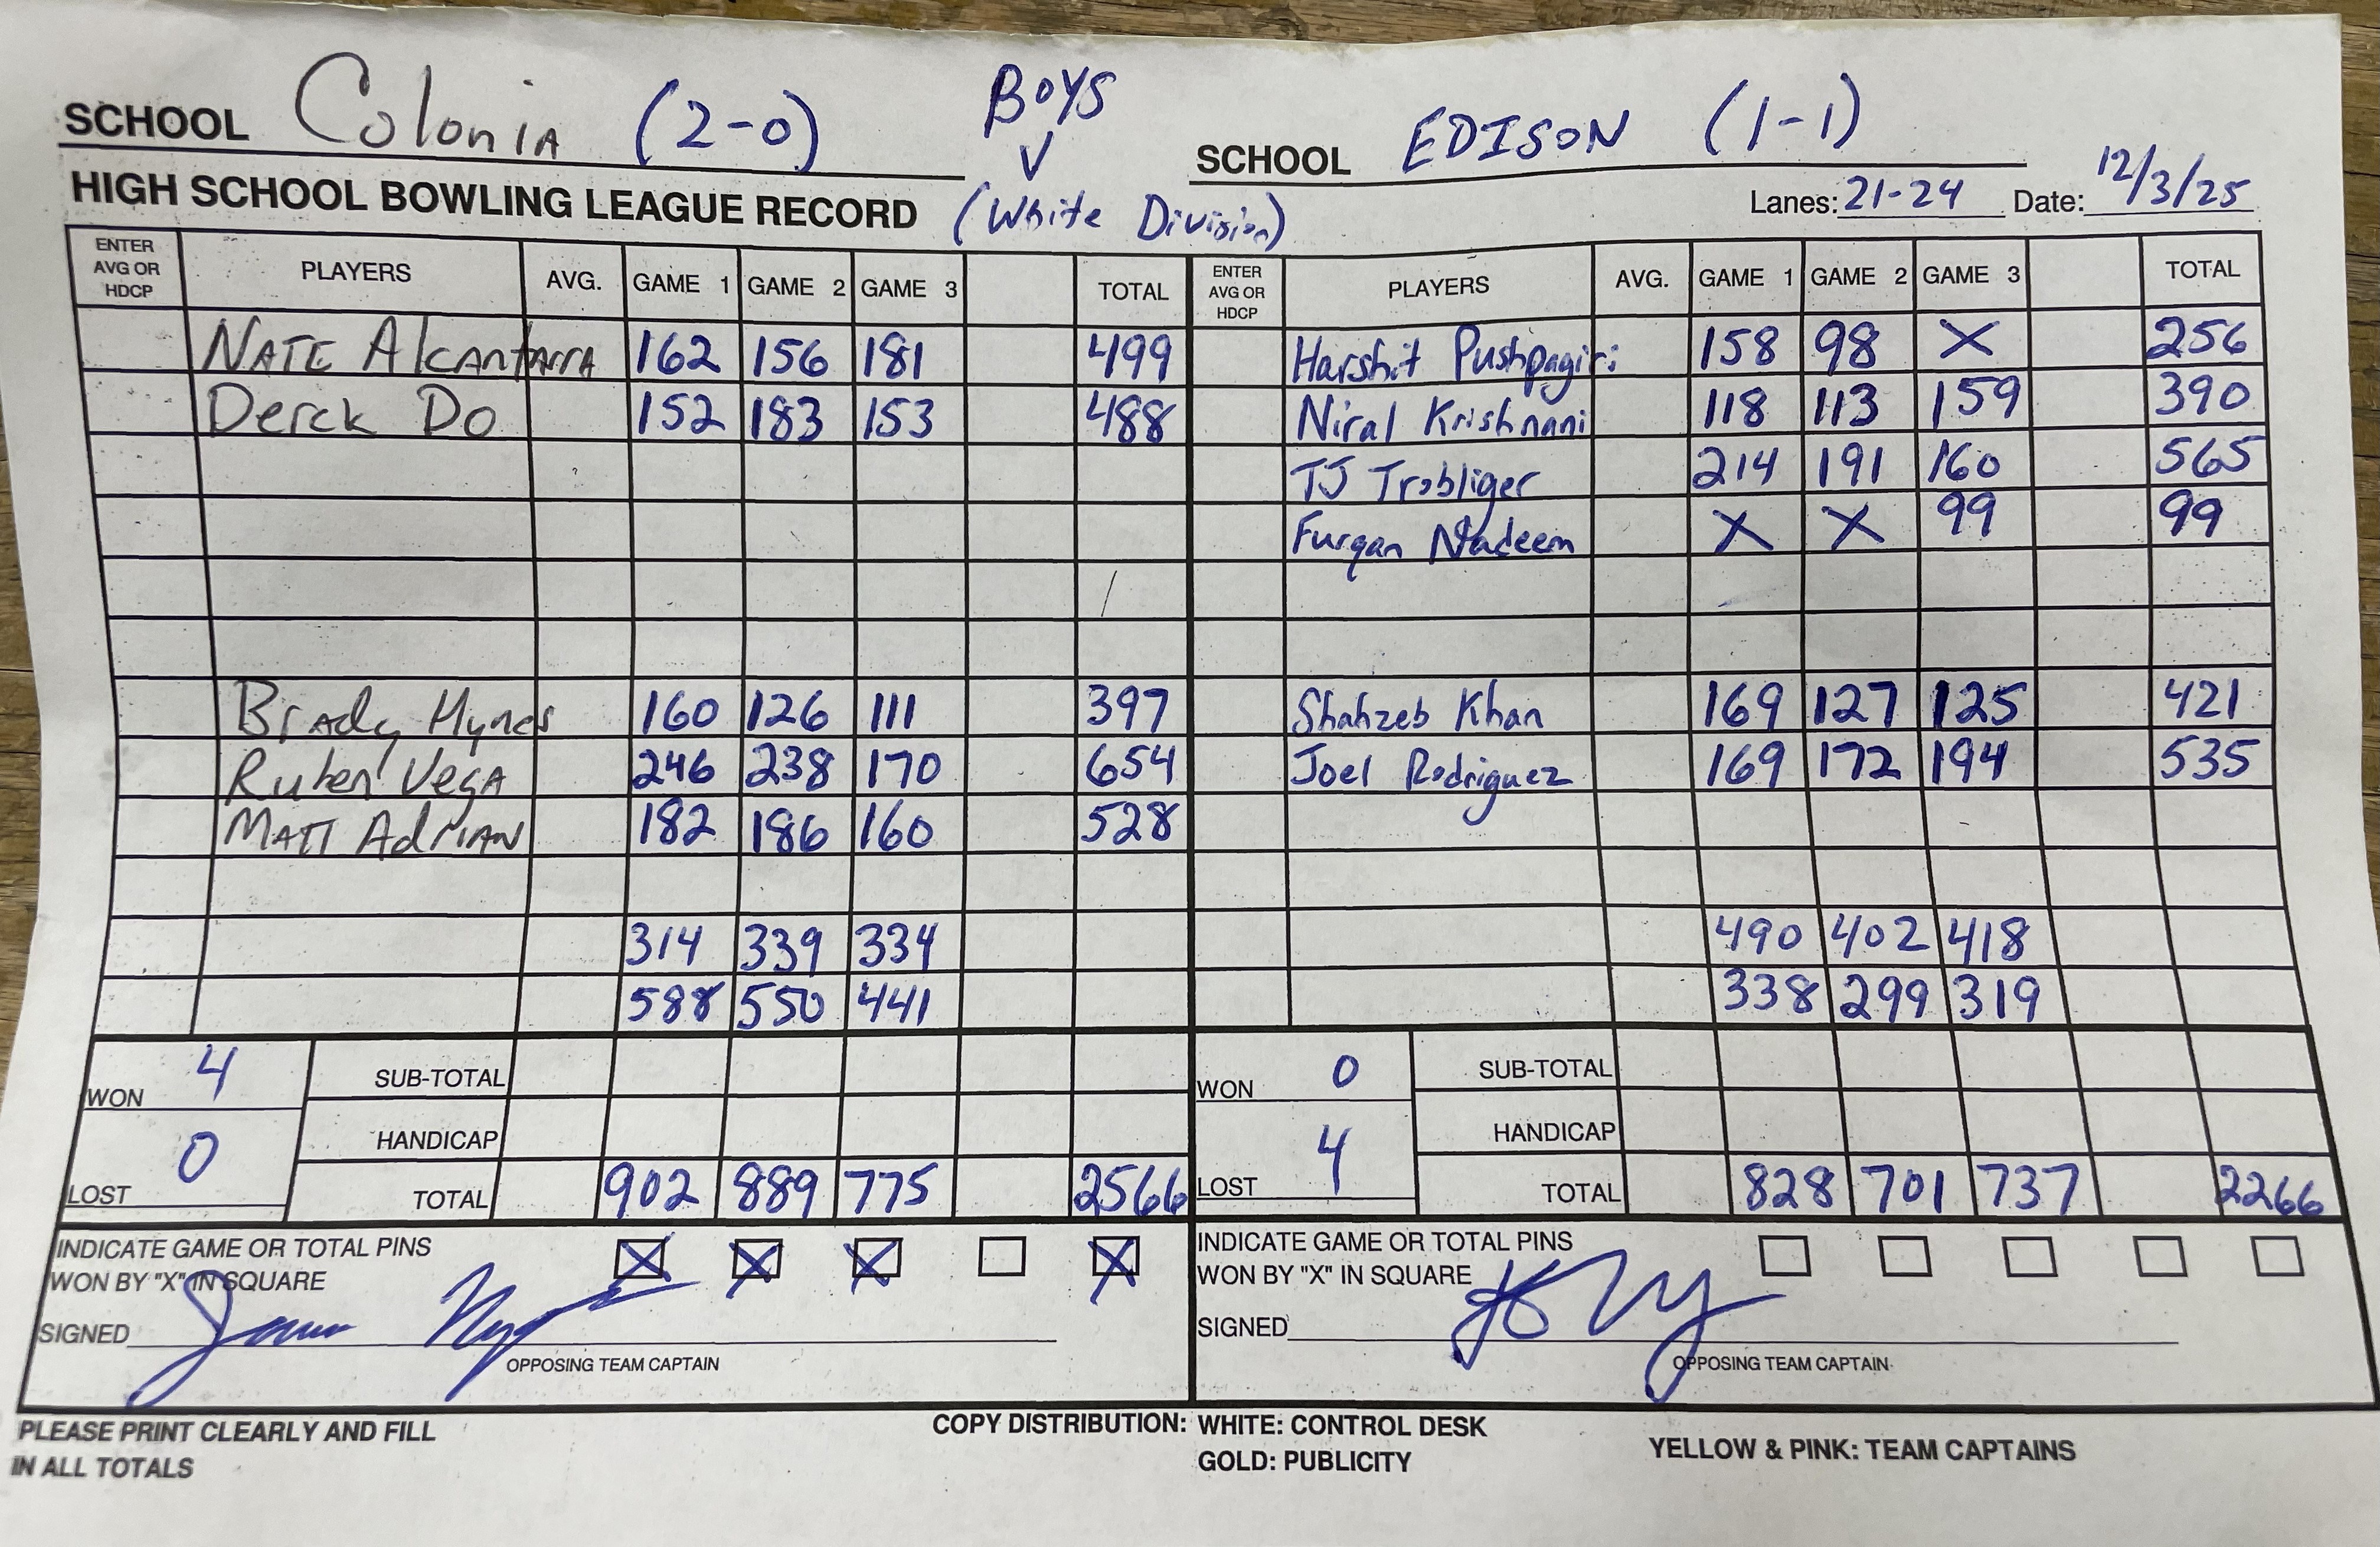 BOYS
SCHOOL Colonia (2-0) V SCHOOL EDISON (1-1)
HIGH SCHOOL BOWLING LEAGUE RECORD (White Division) Lanes: 21-24 Date: 12/3/25
ENTER AVG OR HDCP PLAYERS AVG. GAME 1 GAME 2 GAME 3 TOTAL ENTER AVG OR HDCP PLAYERS AVG. GAME 1 GAME 2 GAME 3 TOTAL
NATE Alcantara 162 156 181 499 Harshit Pushpagiri 158 98 X 256
Derek Do 152 183 153 488 Niral Krishnani 118 113 159 390
TJ Trobliger 214 191 160 565
Furqan Nadeem X X 99 99
Brady Hynes 160 126 111 397 Shahzeb Khan 169 127 125 421
Ruben Vega 246 238 170 654 Joel Rodriguez 169 172 194 535
MATT Adrian 182 186 160 528
314 339 334 490 402 418
588 550 441 338 299 319
WON 4 SUB-TOTAL WON 0 SUB-TOTAL
HANDICAP HANDICAP
LOST 0 TOTAL 902 889 775 2566 LOST 4 TOTAL 828 701 737 2266
INDICATE GAME OR TOTAL PINS X X X X INDICATE GAME OR TOTAL PINS
WON BY "X" IN SQUARE WON BY "X" IN SQUARE
SIGNED SIGNED
OPPOSING TEAM CAPTAIN OPPOSING TEAM CAPTAIN
PLEASE PRINT CLEARLY AND FILL COPY DISTRIBUTION: WHITE: CONTROL DESK
IN ALL TOTALS GOLD: PUBLICITY YELLOW & PINK: TEAM CAPTAINS